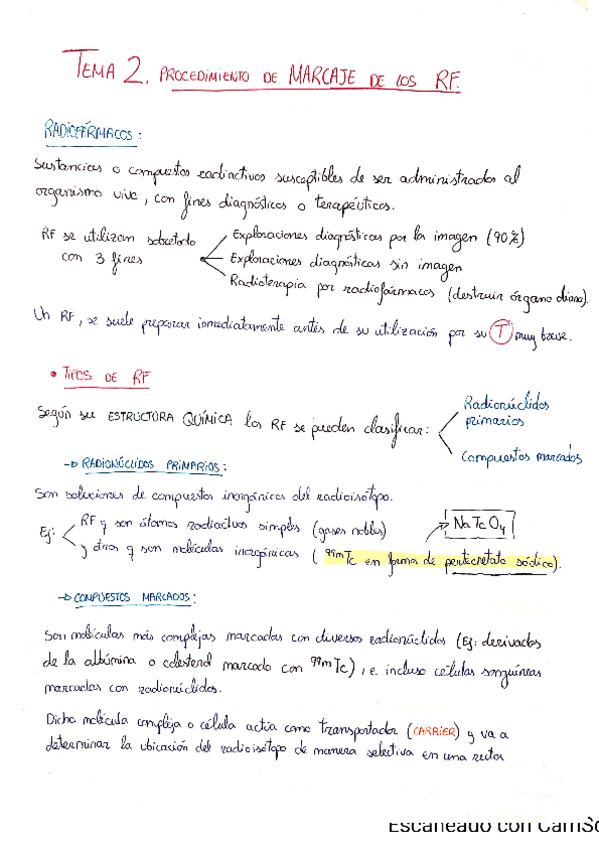 TEMA 2. PROCEDIMIENTO DE MARCAJE DE LOS RF.
RADIOFÁRMACOS:
Sustancias o compuestos radiactivos susceptibles de ser administrados al
organismo vivo, con fines diagnósticos o terapéuticos.
RF se utilizan sobretodo
con 3 fines
Exploraciones diagnósticas por la imagen (90%)
Exploraciones diagnósticas sin imagen
Radioterapia por radiofármacos (destruir órgano diana).
Un RF, se suele preparar inmediatamente antes de su utilización por su T muy breve.
• TIPOS DE RF
Según su ESTRUCTURA QUÍMICA los RF se pueden clasificar:
Radionúclidos
primarios
Compuestos marcados
→ RADIONÚCLIDOS PRIMARIOS:
Son soluciones de compuestos inorgánicos del radioisótopo.
Ej:
RF q son átomos radiactivos simples (gases nobles)
NaTcO4
y otros q son moléculas inorgánicas (99mTc en forma de pertecnetato sódico).
→ COMPUESTOS MARCADOS:
Son moléculas más complejas marcadas con diversos radionúclidos (Ej: derivados
de la albúmina o colesterol marcado con 99mTc), e incluso células sanguíneas
marcadas con radionúclidos.
Dicha molécula compleja o célula actúa como transportador (CARRIER) y va a
determinar la ubicación del radioisótopo de manera selectiva en una
Escaneado con CamSc